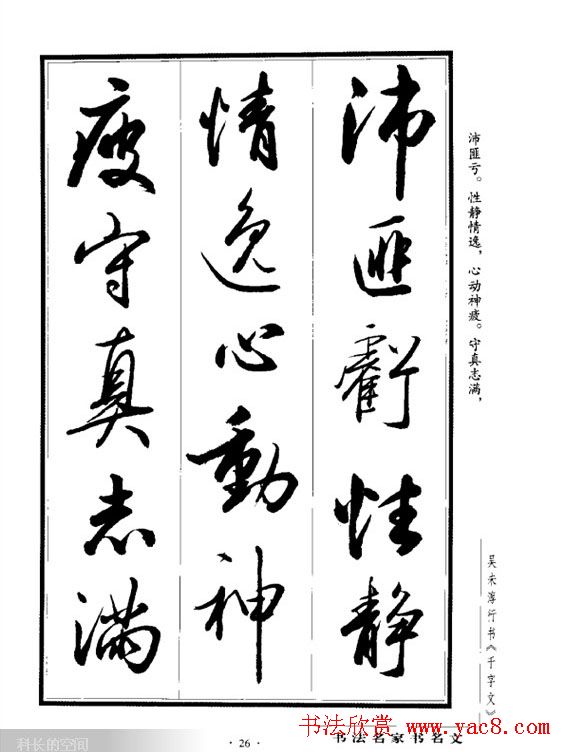 沛匪虧性静
情逸心動神
疲守真志满
沛匪亏。性静情逸，心动神疲。守真志满，
吴未淳行书《千字文》
书法名家书名文
· 26 ·
书法欣赏 www.yac8.com
科长的空间